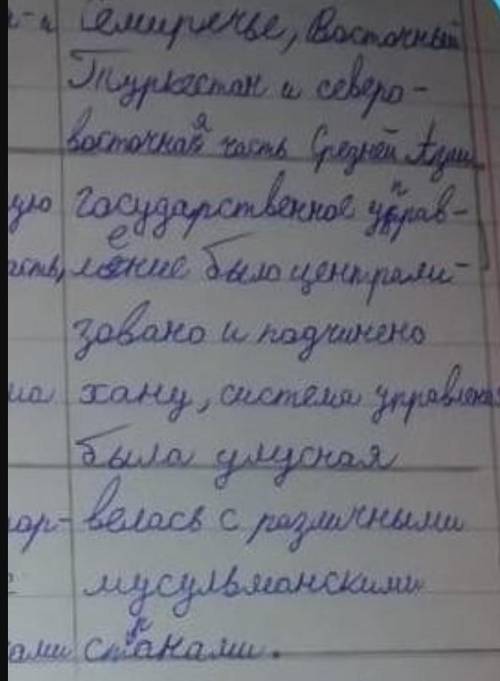 -и Семиречье, Восточный
Туркестан и северо-
восточная часть Средней Азии.
ую государственное управ-
асть, ление было централи-
зовано и подчинено
на хану, система управления
была улусная
ар- велась с различными
мусульманскими
ами странами.